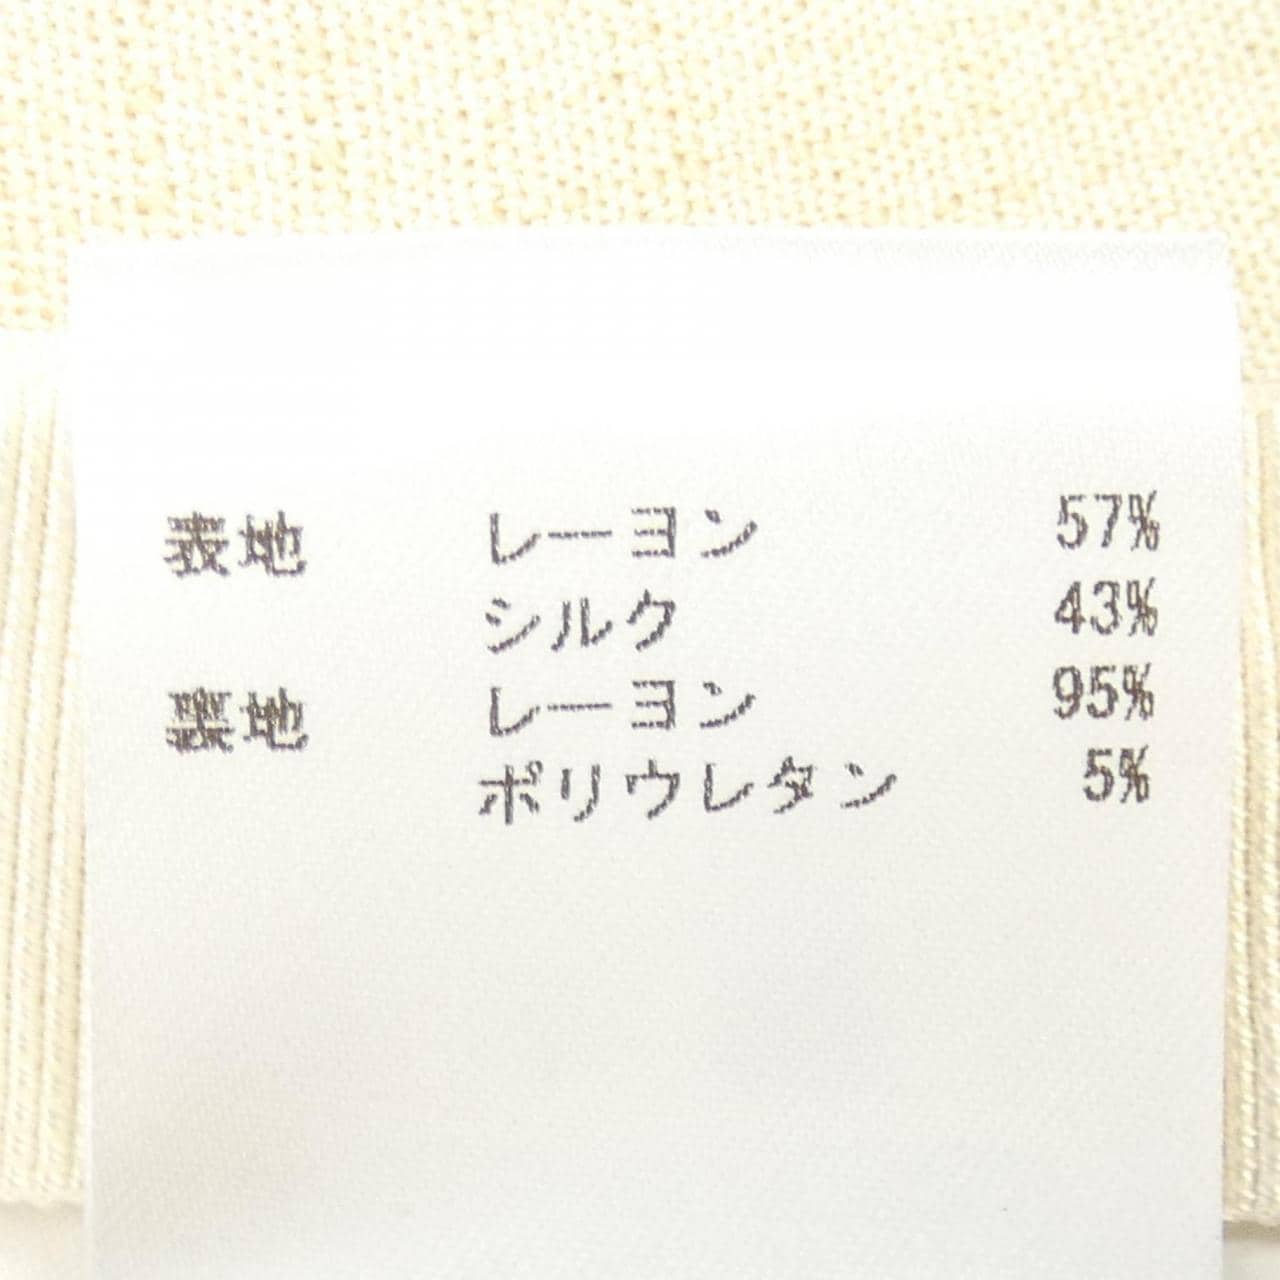 表地 レーヨン 57%
シルク 43%
裏地 レーヨン 95%
ポリウレタン 5%